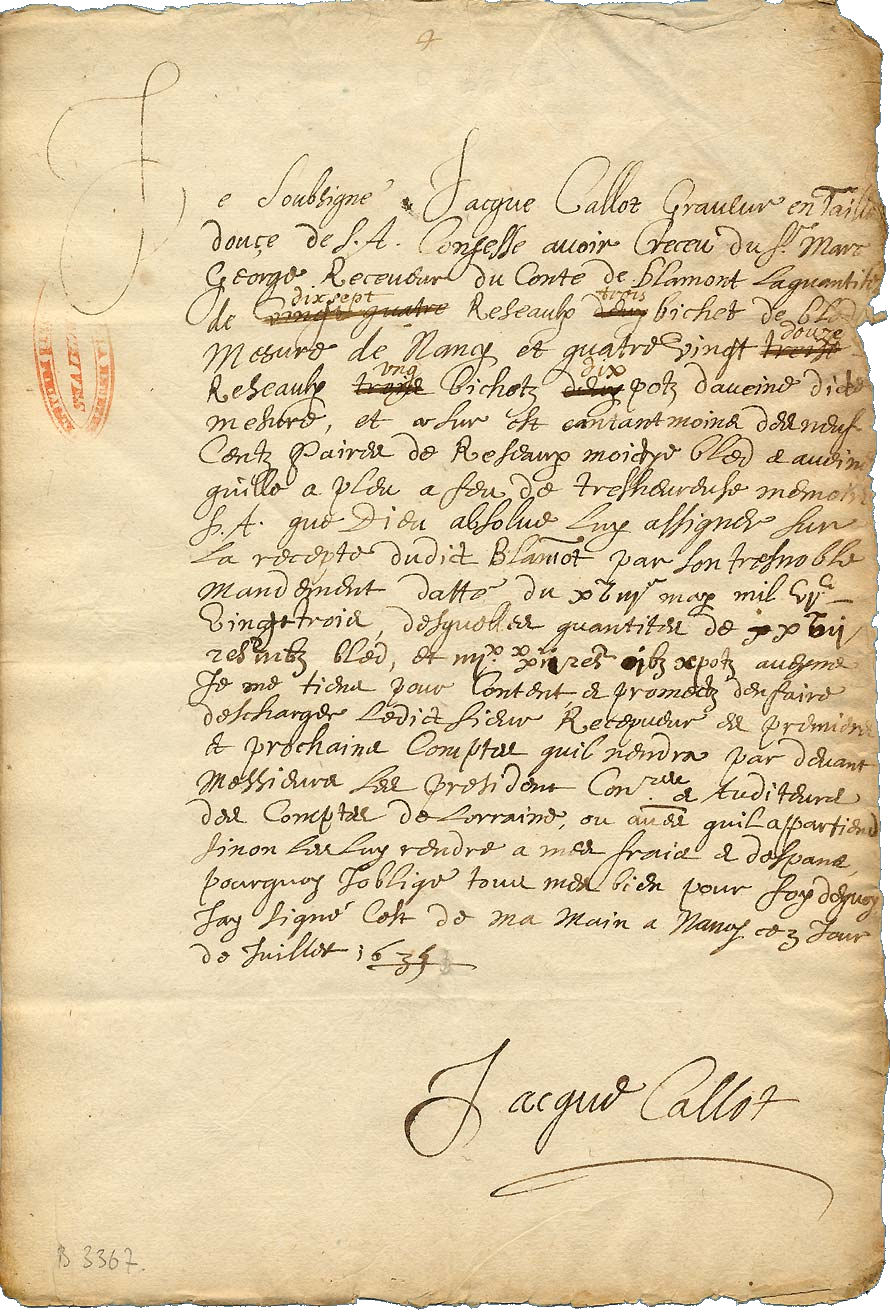 4
Je Soubsigné Jacque Callot Graueur en Taille
douçe de S. A. Confesse auoir Receu du Sr. Marc
George Receueur du Conte de Blamont Laquantité
dix sept trois
de vingt quatre Reseaulx deux bichet de bled
douze
Mesure de Nancy et quatre vingt treise
vng dix
Reseaulx bichetz deux potz daueine dicte
mesure, et sur est entantmoine des neuf
Centz Paires de Reseaux moictye bled & aueine
quille a pleu a feu de tresheureuse memoire
S. A. que Dieu absolue Luy assigner sur
La recepte dudict Blamot par son tresnoble
Mandement datte du may mil vjc
Vingttrois, desquelles quantites de
bled, et xpotz aueyne
Je me tiens pour Content & promectz den faire
descharger Ledict Sieur Recepueur es premiers
et prochains Comptes quil rendra par deuant
Messieurs Les president Conrs & Auditeurs
des Comptes de Lorraine, ou quil appartiend
sinon Les Luy rendre a mes frais & despans,
pourquoy Joblige tous mes bien pour foy dequoy
Jay signé Cest de ma Main a Nancy ce 3 Jour
de Juillet 1635
Jacque Callot
B 3367.